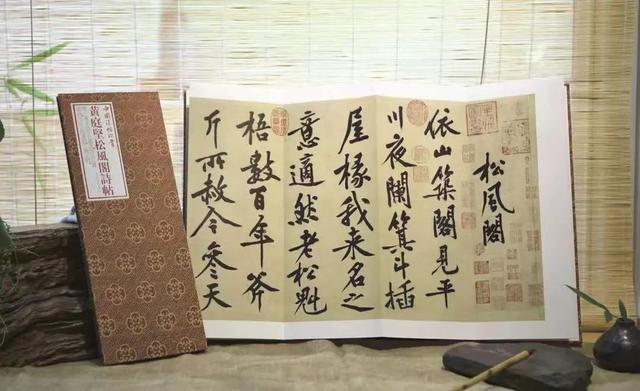 黃庭堅松風閣詩帖
松風閣
依山築閣見平
川夜闌箕斗插
屋椽我来名之
意適然老松魁
梧數百年斧
斤所赦今參天